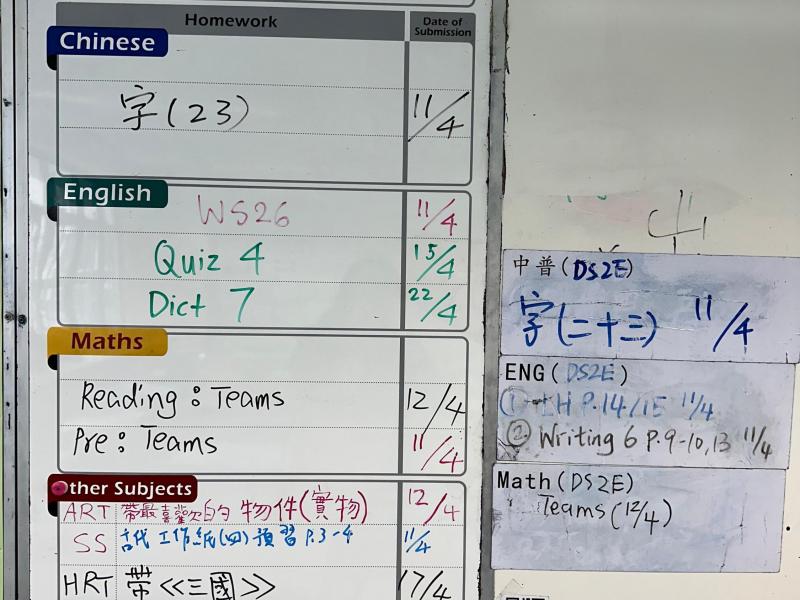 Homework
Date of Submission
Chinese
字(23) 11/4
English
WS26 11/4
Quiz 4 15/4
Dict 7 22/4
Maths
Reading : Teams 12/4
Pre : Teams 11/4
Other Subjects
ART 帶最喜歡的物件(實物) 12/4
SS 古代工作紙(四)預習 P.3-4 11/4
HRT 帶<<三國>> 17/4
中普(DS2E)
字(二十三) 11/4
ENG(DS2E)
① P.14/15 11/4
② Writing 6 P.9-10,13 11/4
Math(DS2E)
Teams(12/4)